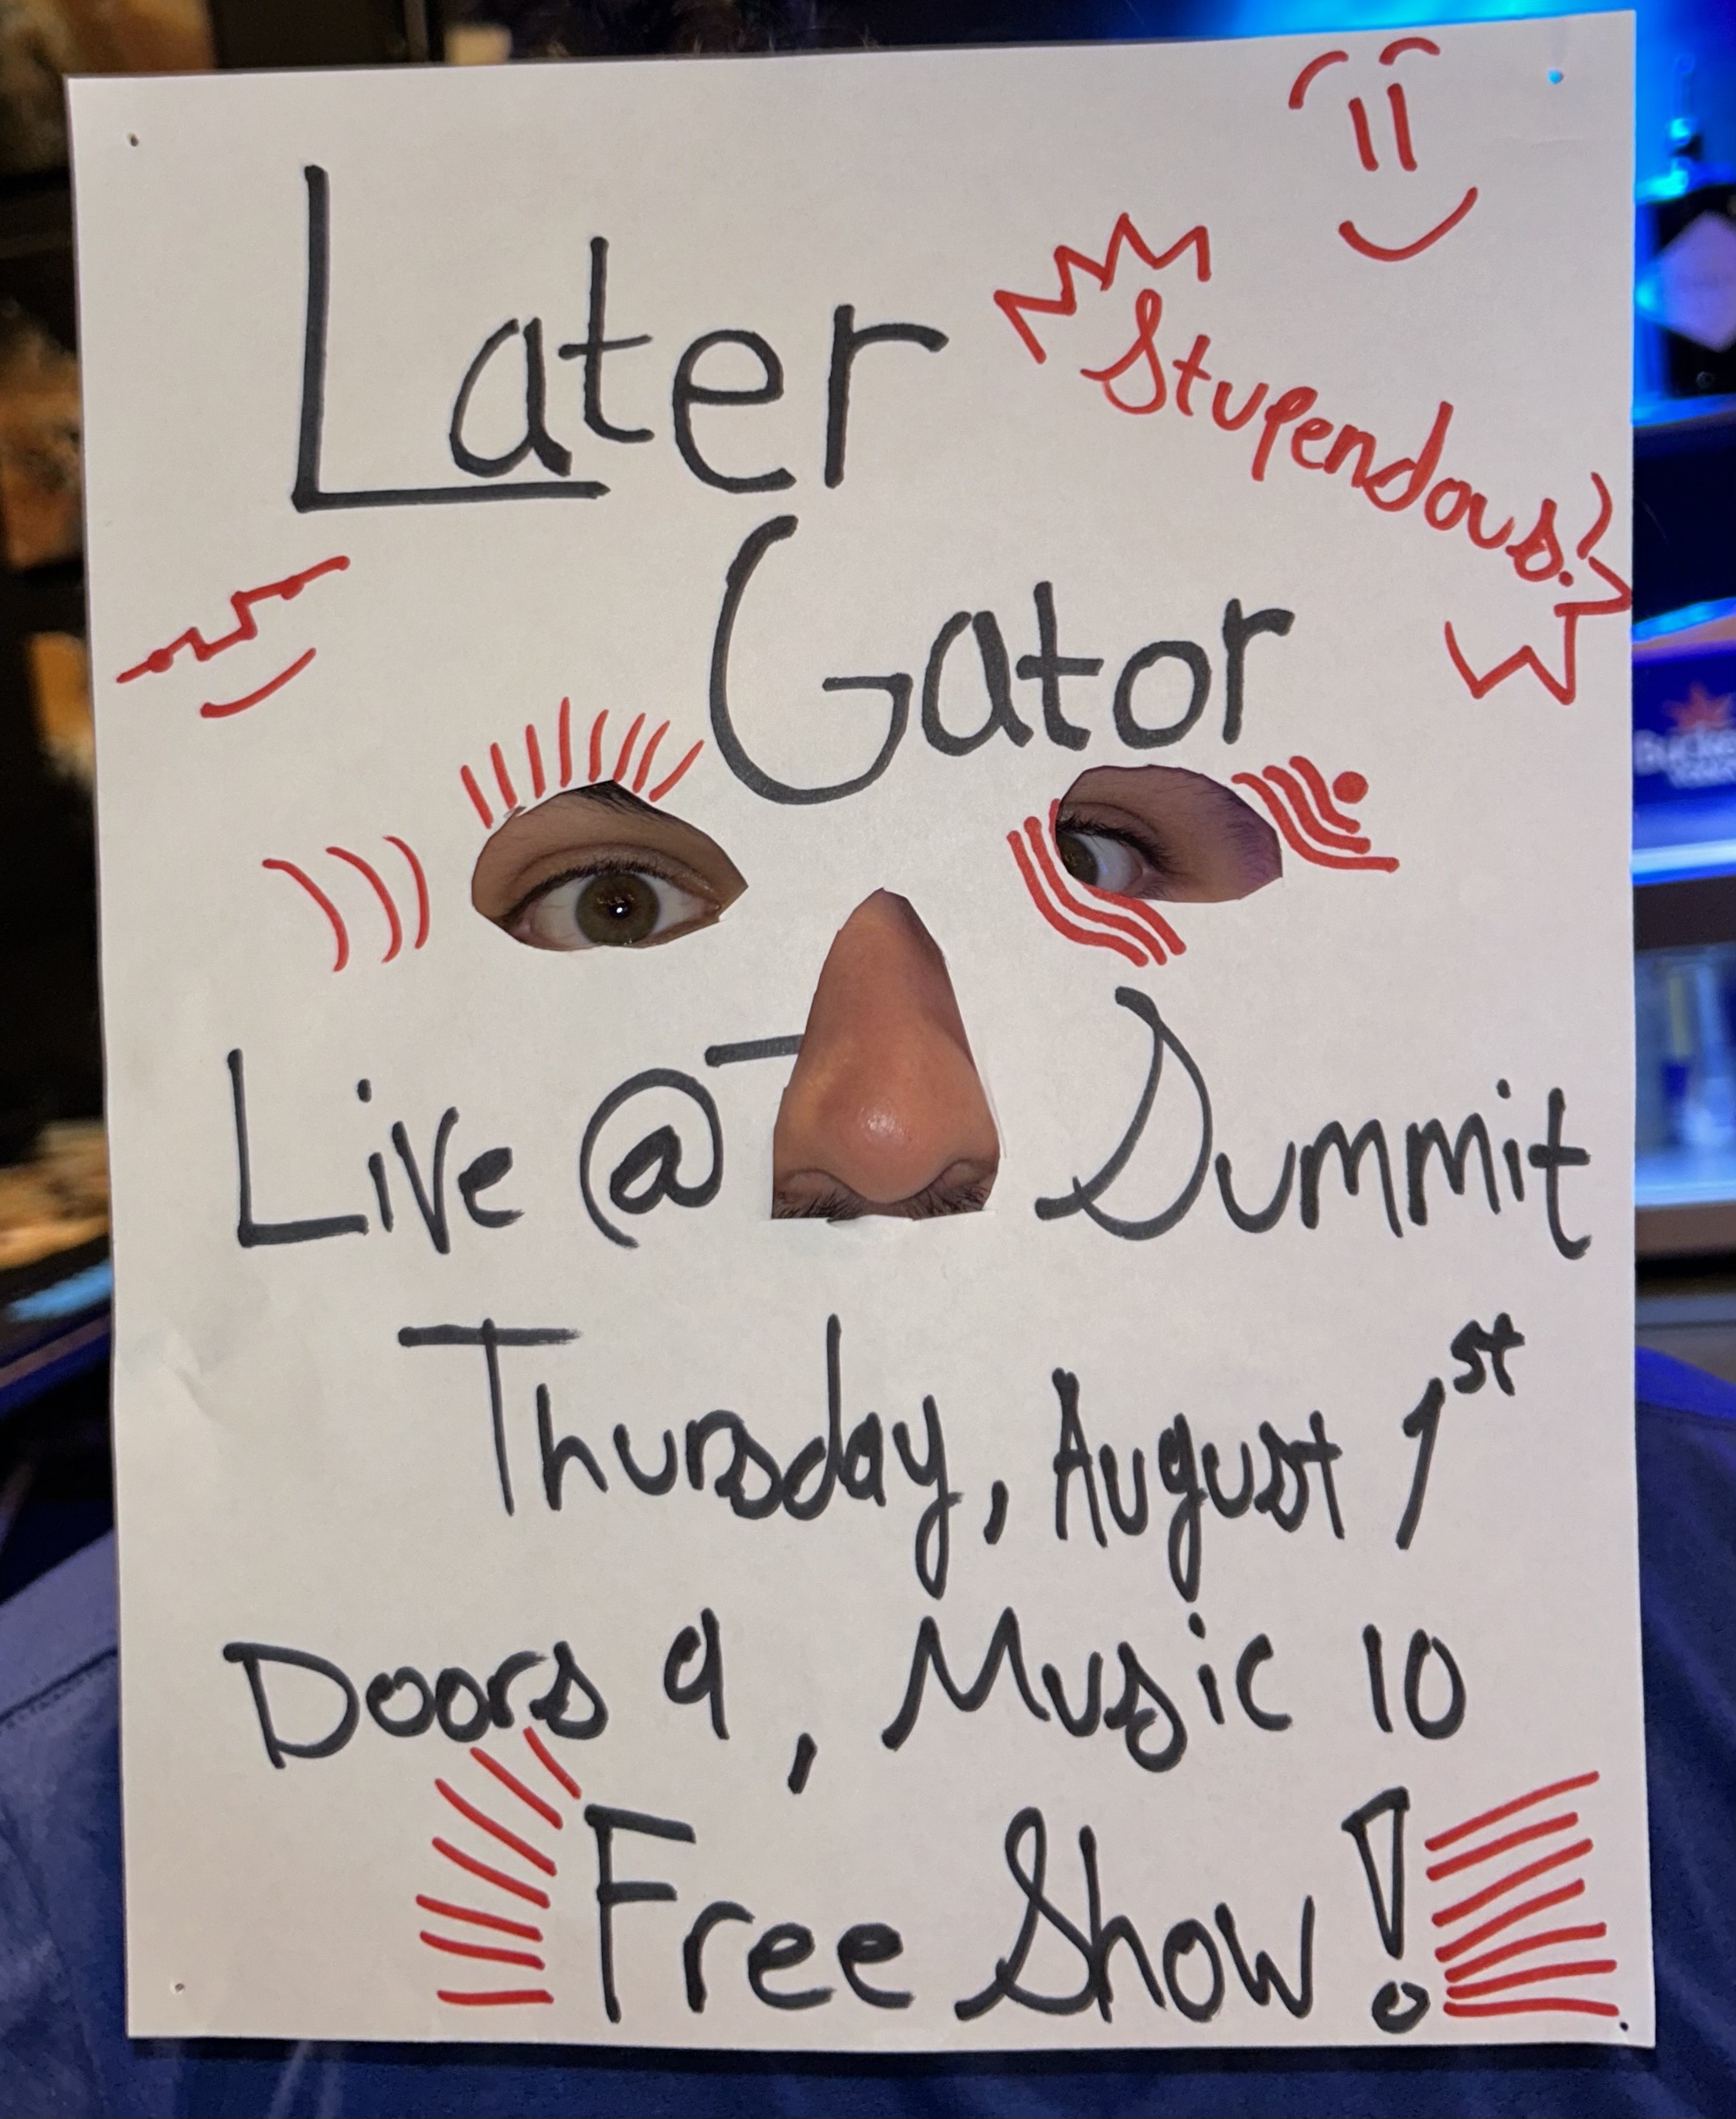 Later
Stupendous!
Gator
Live @ Summit
Thursday, August 1st
Doors 9, Music 10
Free Show!